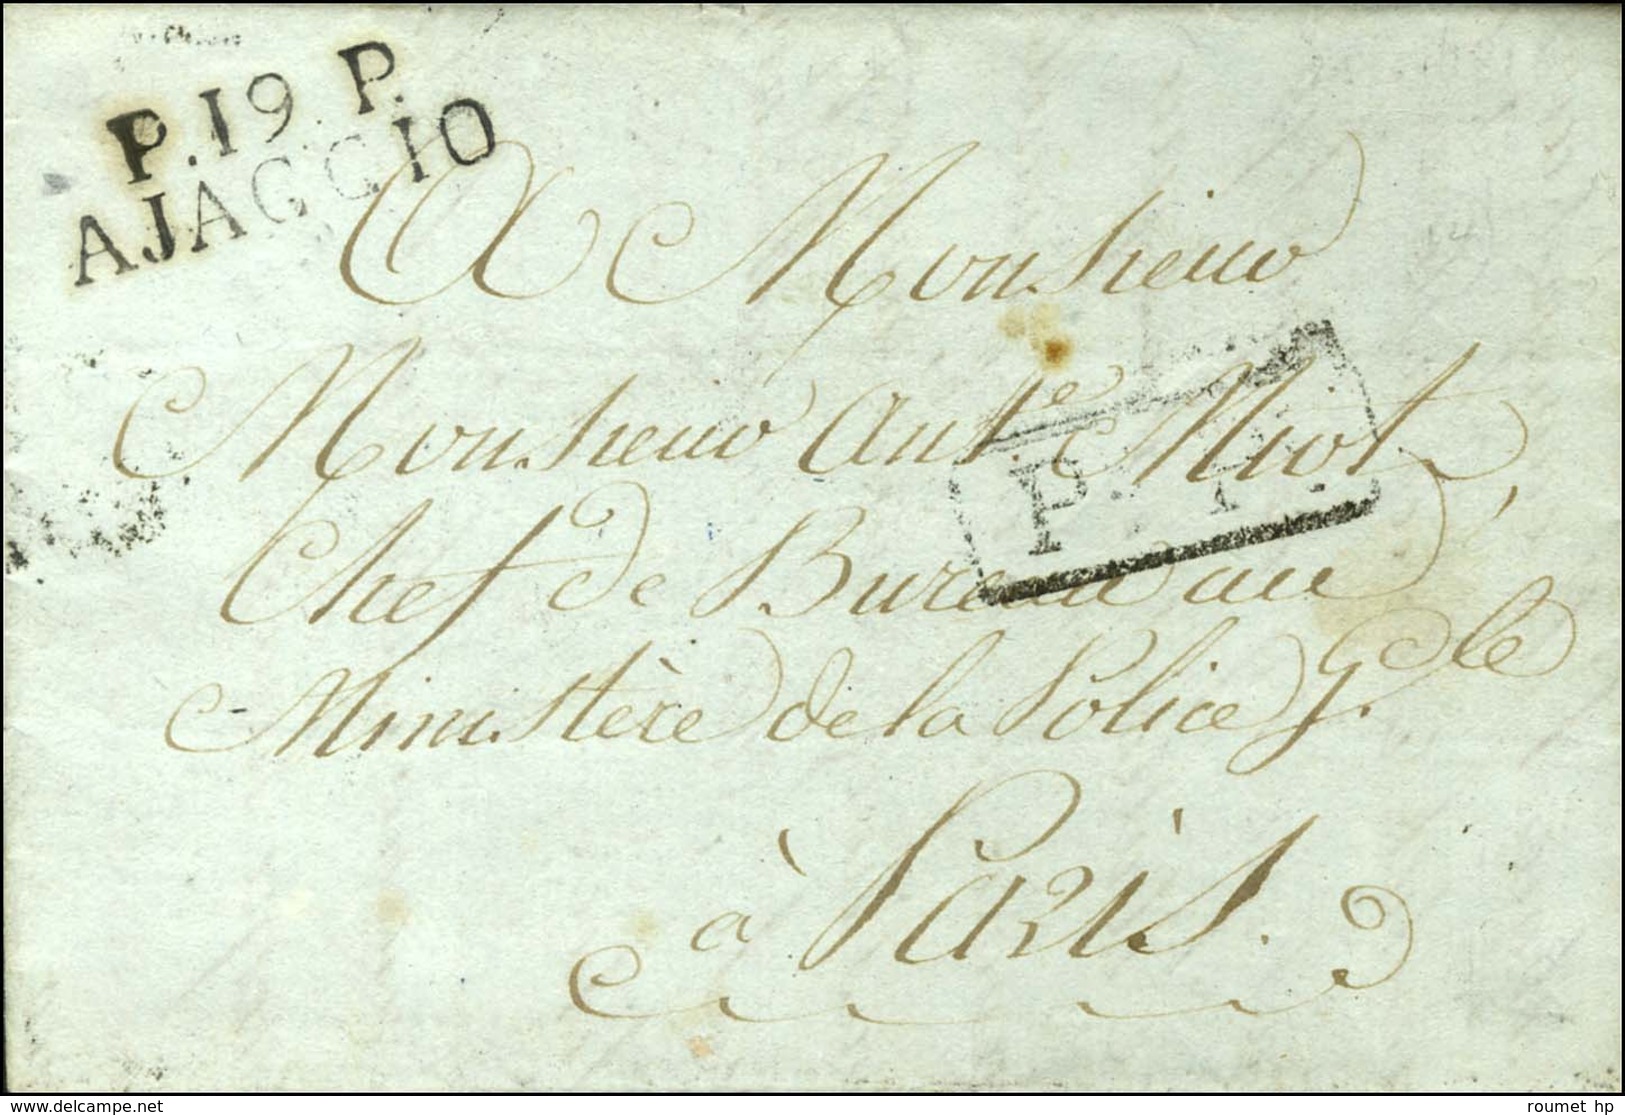 P.19.P.
AJAGGIO
A Monsieur
Monsieur Ant.e Miot,
P. P.
Chef de Bureau au
Ministère de la Police G.ale
à Paris.
delcampe.net
roumet hp